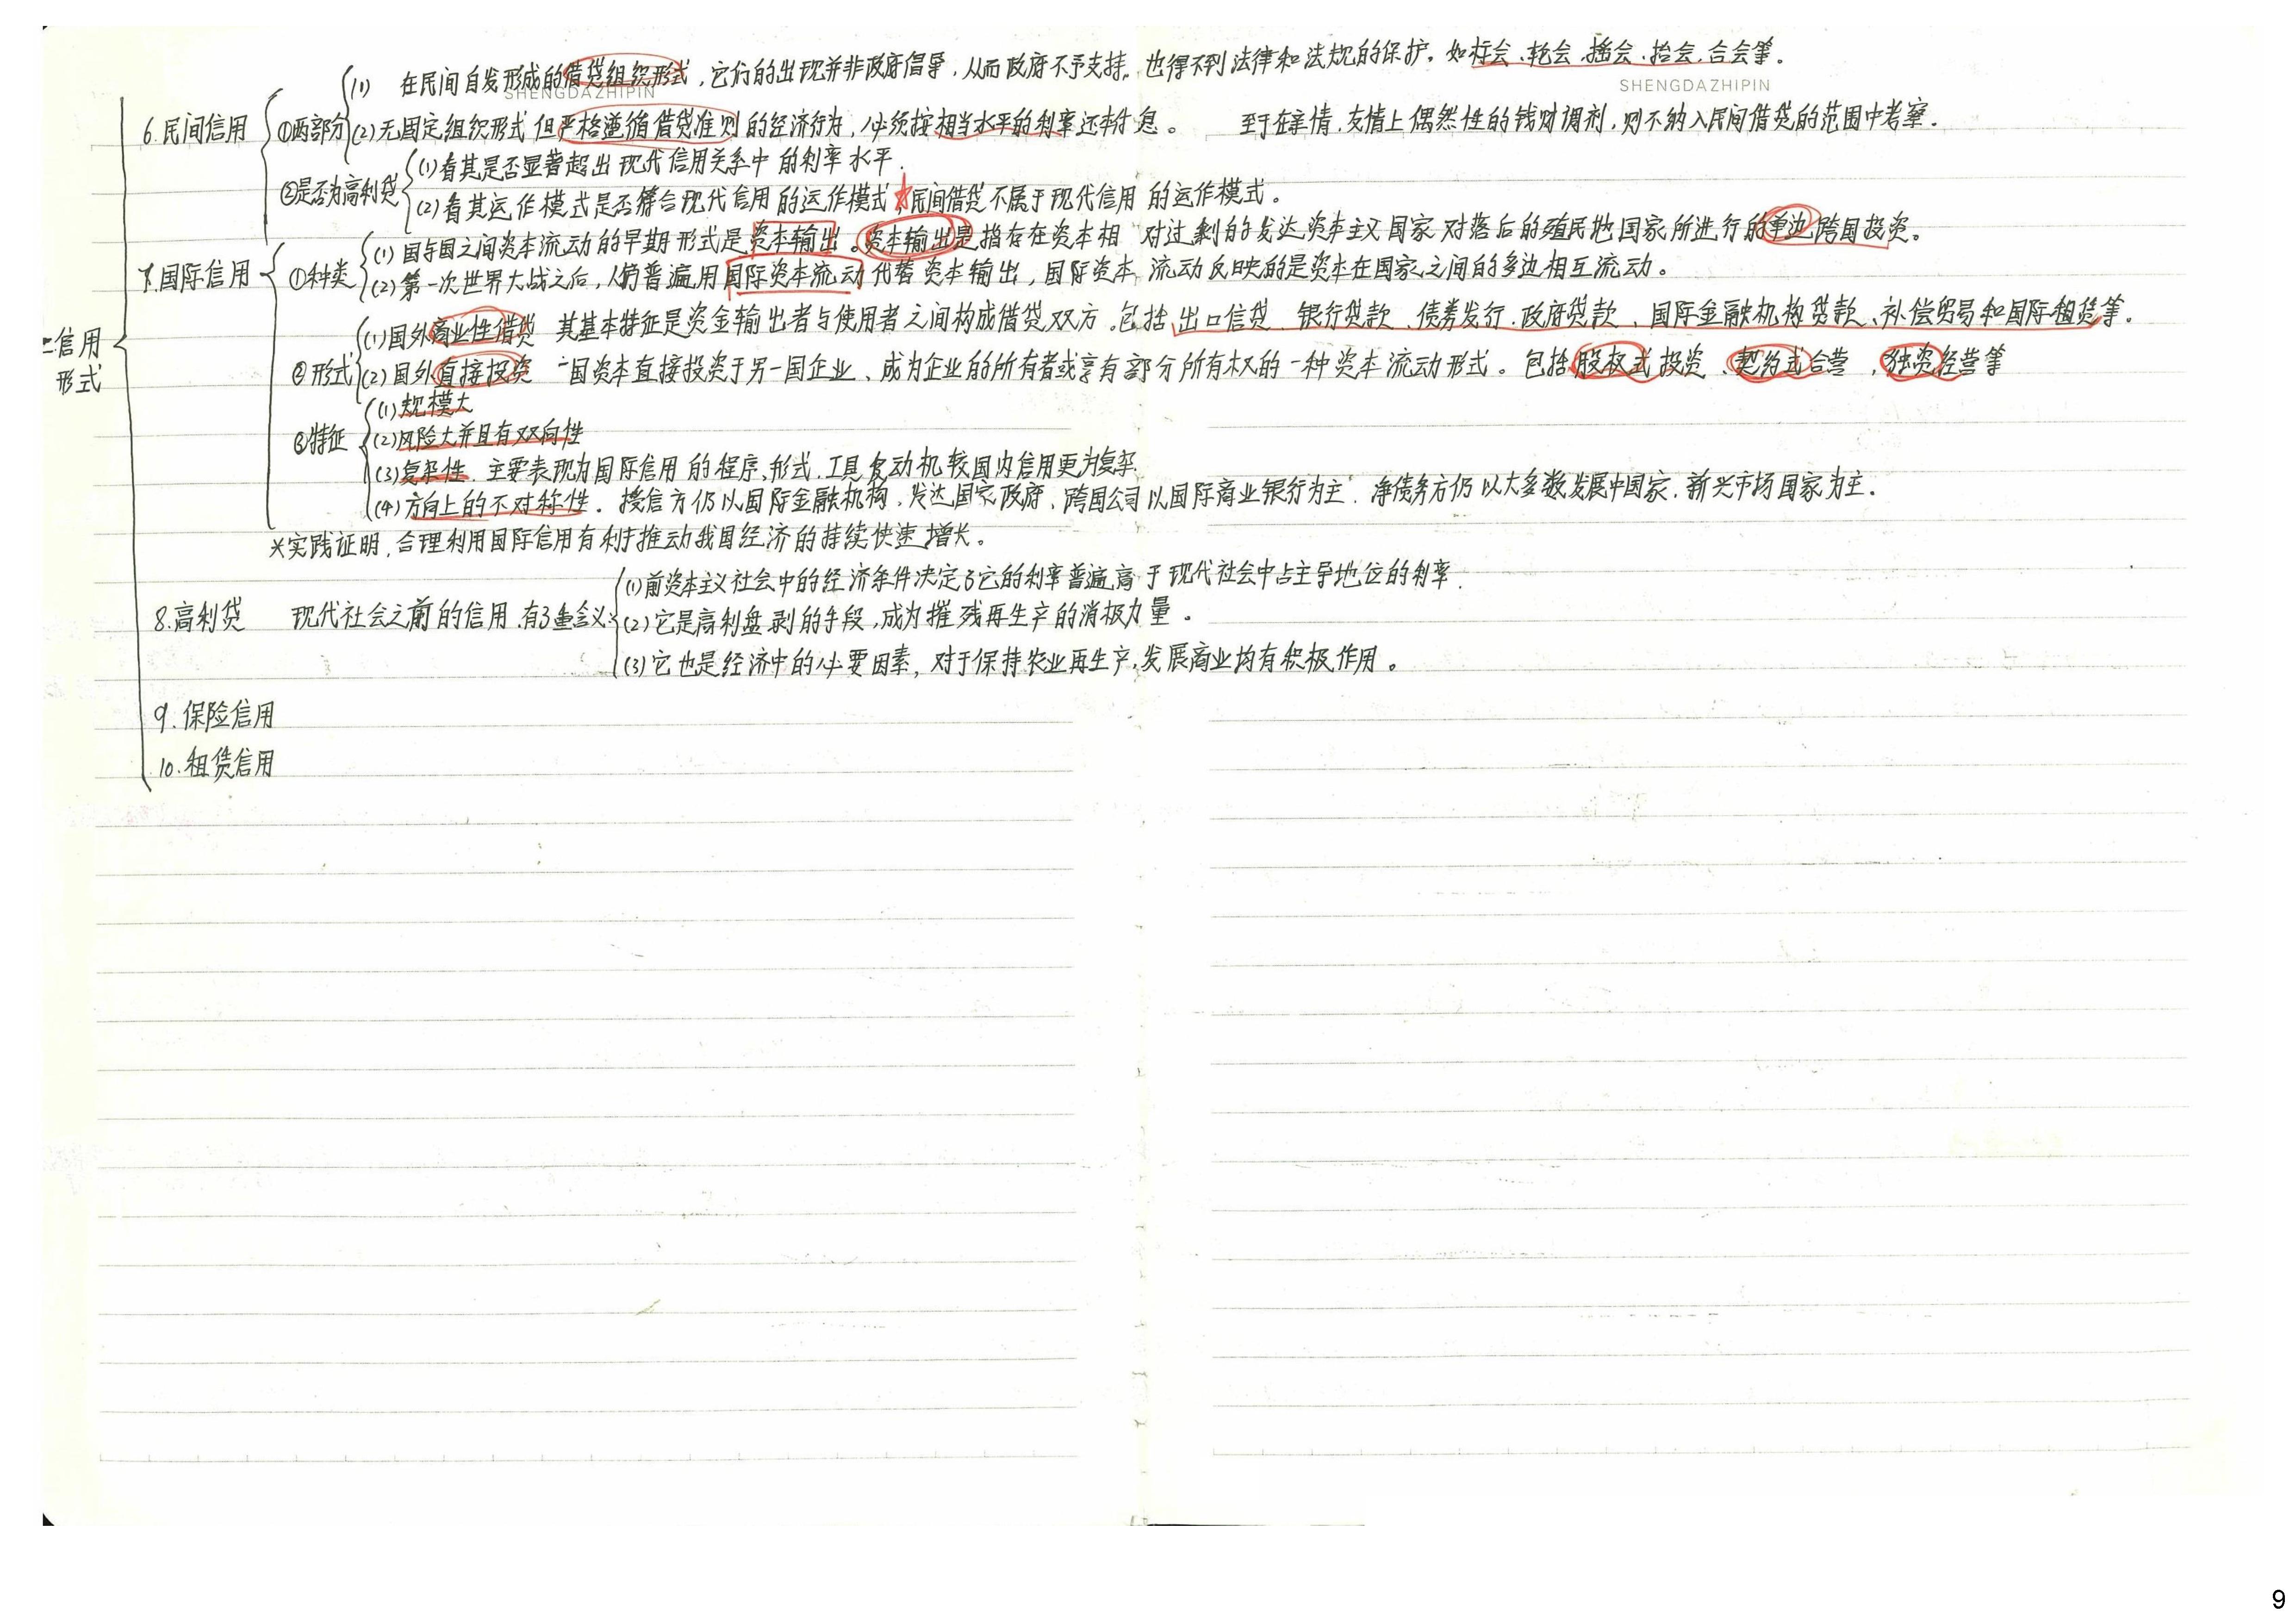 (1) 在民间自发形成的借贷组织形式，它们的出现并非政府倡导，从而政府不予支持。也得不到法律和法规的保护。如标会、轮会、摇会、抬会、合会等。
SHENGDAZHIPIN SHENGDAZHIPIN
6.民间信用 ①两部分 (2)无固定组织形式但严格遵循借贷准则的经济行为，必须按相当水平的利率还本付息。 至于在亲情、友情上偶然性的钱财调剂，则不纳入民间借贷的范围中考察.
②是否为高利贷 (1)看其是否显著超出现代信用关系中的利率水平.
(2)看其运作模式是否符合现代信用的运作模式 民间借贷不属于现代信用的运作模式。
7.国际信用 ①种类 (1)国与国之间资本流动的早期形式是资本输出。资本输出是指存在资本相对过剩的发达资本主义国家对落后的殖民地国家所进行的单边跨国投资。
(2)第一次世界大战之后，人们普遍用国际资本流动代替资本输出，国际资本流动反映的是资本在国家之间的多边相互流动。
二信用形式
②形式 (1)国外商业性借贷 其基本特征是资金输出者与使用者之间构成借贷双方。包括出口信贷、银行贷款、债券发行、政府贷款、国际金融机构贷款、补偿贸易和国际租赁等.
(2)国外直接投资 一国资本直接投资于另一国企业、成为企业的所有者或享有部分所有权的一种资本流动形式。包括股权式投资、契约式合营，独资经营等
③特征 (1)规模大
(2)风险大并且有双向性
(3)复杂性. 主要表现为国际信用的程序、形式、工具及动机较国内信用更为复杂.
(4)方向上的不对称性. 授信方仍以国际金融机构、发达国家政府、跨国公司以国际商业银行为主. 净债务方仍以大多数发展中国家、新兴市场国家为主.
*实践证明，合理利用国际信用有利于推动我国经济的持续快速增长。
8.高利贷 现代社会之前的信用.有3重含义: (1)前资本主义社会中的经济条件决定了它的利率普遍高于现代社会中占主导地位的利率.
(2)它是高利盘剥的手段，成为摧残再生产的消极力量。
(3)它也是经济中的必要因素，对于保持农业再生产、发展商业均有积极作用。
9.保险信用
10.租赁信用
9